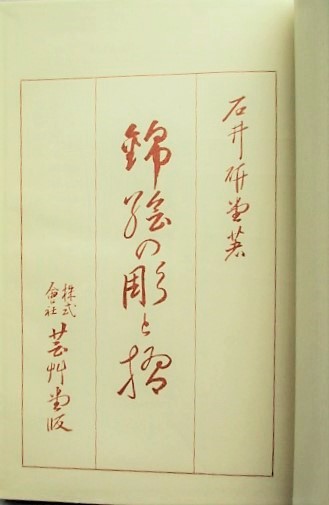 石井研堂著
錦絵の彫と摺
株式
會社
芸艸堂版